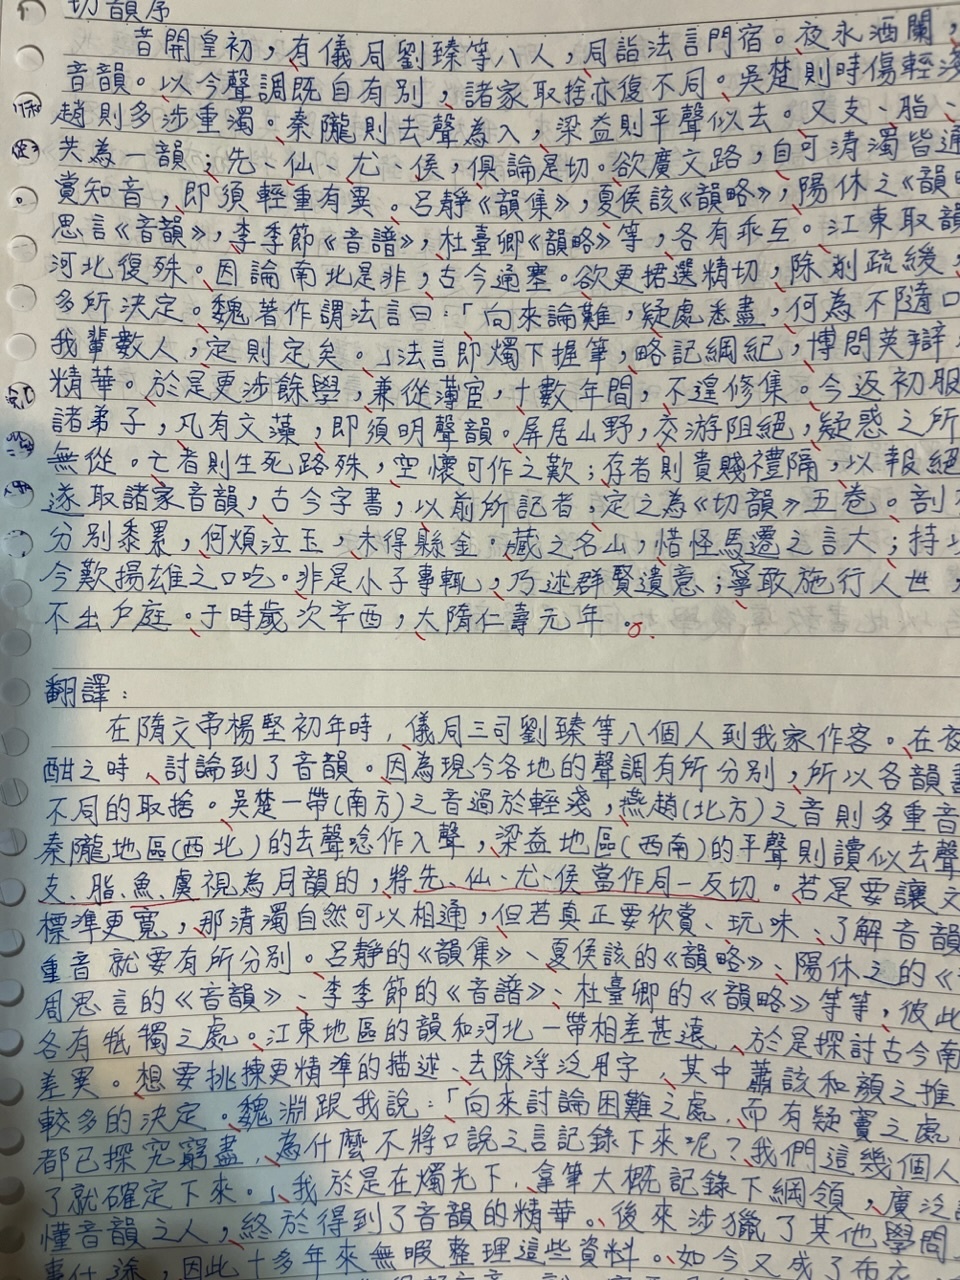 切韻序
昔開皇初，有儀同劉臻等八人，同詣法言門宿。夜永酒闌，
音韻。以今聲調既自有別，諸家取捨亦復不同。吳楚則時傷輕淺
趙則多涉重濁。秦隴則去聲為入，梁益則平聲似去。又支、脂、
共為一韻；先、仙、尤、侯，俱論是切。欲廣文路，自可清濁皆通
賞知音，即須輕重有異。呂靜《韻集》，夏侯該《韻略》，陽休之《韻
思言《音韻》，李季節《音譜》，杜臺卿《韻略》等，各有乖互。江東取韻
河北復殊。因論南北是非，古今通塞。欲更捃選精切，除削疏緩，
多所決定。魏著作謂法言曰：「向來論難，疑處悉盡，何為不隨口
我輩數人，定則定矣。」法言即燭下握筆，略記綱紀，博問英辯
精華。於是更涉餘學，兼從薄宦，十數年間，不遑修集。今返初服
諸弟子，凡有文藻，即須明聲韻。屏居山野，交游阻絕，疑惑之所
無從。亡者則生死路殊，空懷可作之歎；存者則貴賤禮隔，以報絕
遂取諸家音韻，古今字書，以前所記者，定之為《切韻》五卷。剖
分別黍累，何煩泣玉，未得縣金。藏之名山，惜怪馬遷之言大；持
今歎揚雄之口吃。非是小子專輒，乃述群賢遺意；寧敢施行人世，
不出戶庭。于時歲次辛酉，大隋仁壽元年。
翻譯：
在隋文帝楊堅初年時，儀同三司劉臻等八個人到我家作客。在夜
酣之時、討論到了音韻。因為現今各地的聲調有所分別，所以各韻書
不同的取捨。吳楚一帶(南方)之音過於輕淺，燕趙(北方)之音則多重音
秦隴地區(西北)的去聲唸作入聲，梁益地區(西南)的平聲則讀似去聲
支、脂、魚、虞視為同韻的，將先、仙、尤、侯當作同一反切。若是要讓文
標準更寬，那清濁自然可以相通，但若真正要欣賞、玩味、了解音韻
重音就要有所分別。呂靜的《韻集》、夏侯該的《韻略》、陽休之的《
周思言的《音韻》、李季節的《音譜》、杜臺卿的《韻略》等等，彼此
各有牴觸之處。江東地區的韻和河北一帶相差甚遠、於是探討古今南
差異。想要挑揀更精準的描述、去除浮泛用字，其中蕭該和顏之推
較多的決定。魏淵跟我說：「向來討論困難之處，而有疑竇之處
都已探究窮盡，為什麼不將口說之言記錄下來呢？我們這幾個人
了就確定下來。」我於是在燭光下，拿筆大概記錄下綱領，廣泛
懂音韻之人，終於得到了音韻的精華。後來涉獵了其他學問
事仕途，因此十多年來無暇整理這些資料。如今又成了布衣